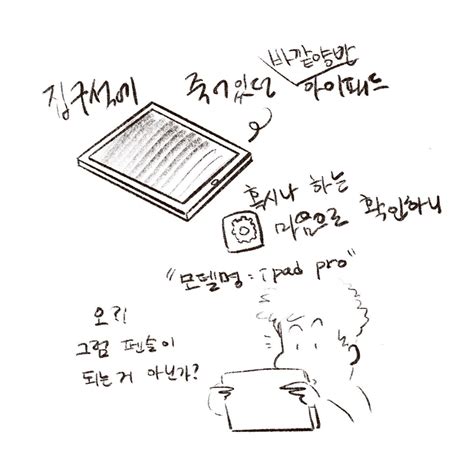 바깥양반
집구석에 죽어있던 아이패드
혹시나 하는
마음으로 확인하니
"모델명 : ipad pro"
오리
그럼 펜슬이
되는거 아닌가?